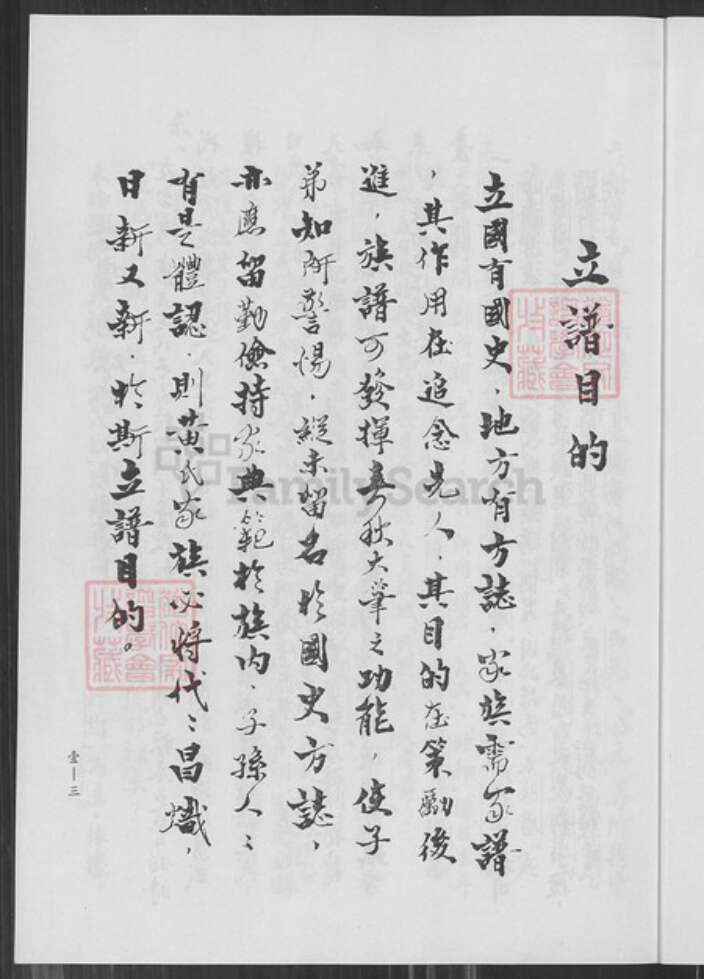 立譜目的
立國有國史，地方有方誌，家族需家譜
，其作用在追念先人，其目的在策勵後
進，族譜可發揮春秋大筆之功能，使子
弟知所警惕，縱未留名於國史方誌，
亦應留勤儉持家典範於族內，子孫人ミ
有是體認，則黃氏家族必將代ミ昌熾，
日新又新，於斯立譜目的。
壹—三
FamilySearch